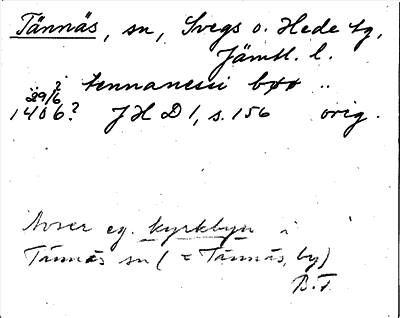 Tännäs, sn, Svegs o. Hede tg,
Jämtl. l.
i tennanesi bøø ..
29/6 ?
1406? JHD 1, s. 156 orig.
Avser eg. kyrkbyn i
Tännäs sn (= Tännäs, by)
B.F.